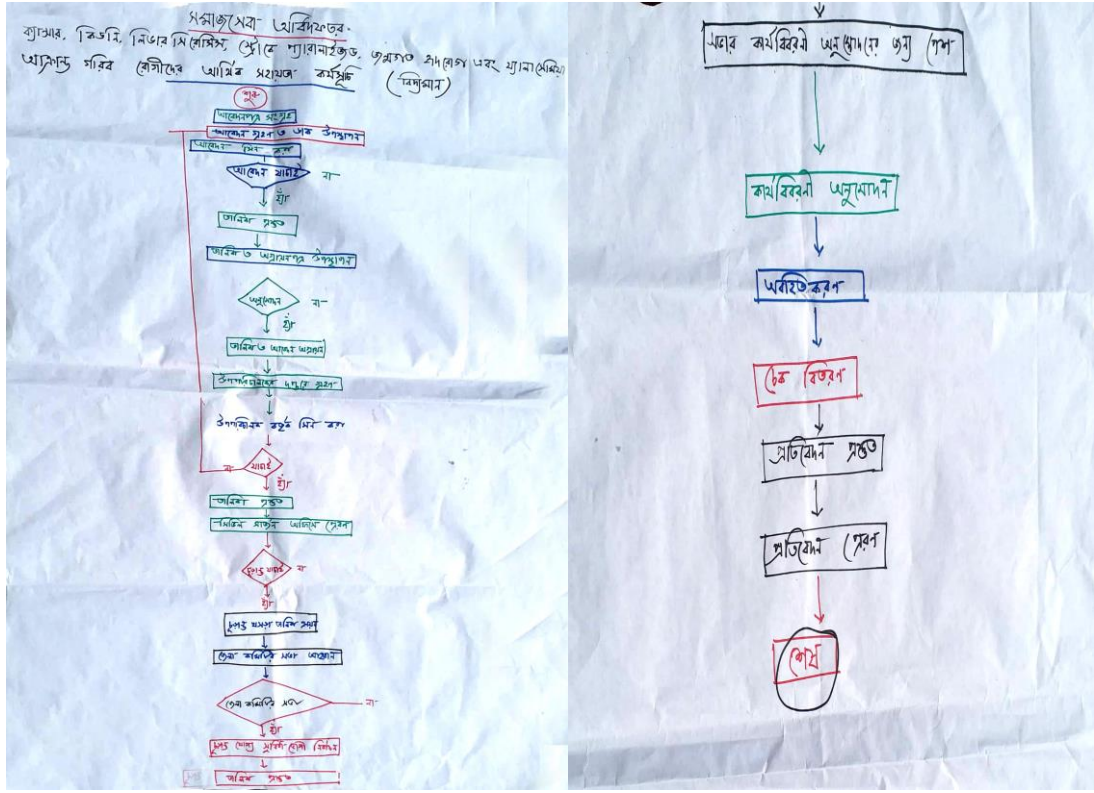 সমাজসেবা অধিদফতর
ক্যান্সার, কিডনি, লিভার সিরোসিস, স্ট্রোকে প্যারালাইজড, জন্মগত হৃদরোগ এবং থ্যালাসেমিয়া
আক্রান্ত গরিব রোগীদের আর্থিক সহায়তা কর্মসূচি (বিদ্যমান)
শুরু
আবেদনপত্র সংগ্রহ
আবেদন গ্রহণ ও ডাক উপস্থাপন
আবেদন
আবেদন যাচাই
না
হ্যাঁ
তালিকা প্রস্তুত
তালিকা ও অগ্রায়নপত্র উপস্থাপন
অনুমোদন
না
হ্যাঁ
তালিকা ও আবেদন অগ্রায়ন
উপপরিচালকের দপ্তরে গ্রহণ
উপপরিচালক কর্তৃক
যাচাই
না
হ্যাঁ
তালিকা প্রস্তুত
সিভিল সার্জন অফিসে প্রেরণ
চূড়ান্ত যাচাই
না
হ্যাঁ
চূড়ান্ত খসড়া তালিকা
জেলা কমিটির সভা আহ্বান
জেলা কমিটির সভা
না
হ্যাঁ
চূড়ান্ত নির্বাচন
তালিকা প্রস্তুত
সভার কার্যবিবরনী অনুমোদনের জন্য পেশ
কার্যবিবরনী অনুমোদন
অবহিতকরণ
চেক বিতরণ
প্রতিবেদন প্রস্তুত
প্রতিবেদন প্রেরণ
শেষ